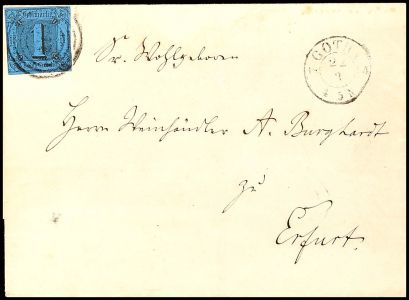 1
GOTHA
22
3
Sr. Wohlgeboren
Herrn Weinhändler A. Burghardt
zu
Erfurt.